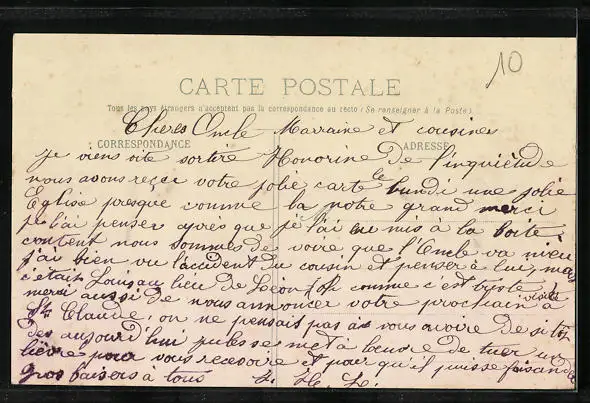 10
CARTE POSTALE
Tous les pays étrangers n'acceptent pas la correspondance au recto (Se renseigner à la Poste)
Chères Oncle Marraine et cousines
CORRESPONDANCE
ADRESSE
je viens vite sortire Honorine de l'inquiétude
nous avons reçue votre jolie carte le lundi une jolie
Eglise presque comme la notre grand merci
je l'ai penser après que je l'ai eu mis à la boite
content nous sommes de voire que l'Oncle va mieu
j'ai bien vu l'accident du cousin et penser à lui, mais
c'était Louis au lieu de Léon comme c'est triste
merci aussi de nous annoncer votre prochain visite à
St Claude, on ne pensait pas à vous avoire de si tôt
des aujourd'hui met à l'œuvre de tuer un
lièvre pour vous recevoire et pour qu'il puisse faisandé
Gros baisers à tous